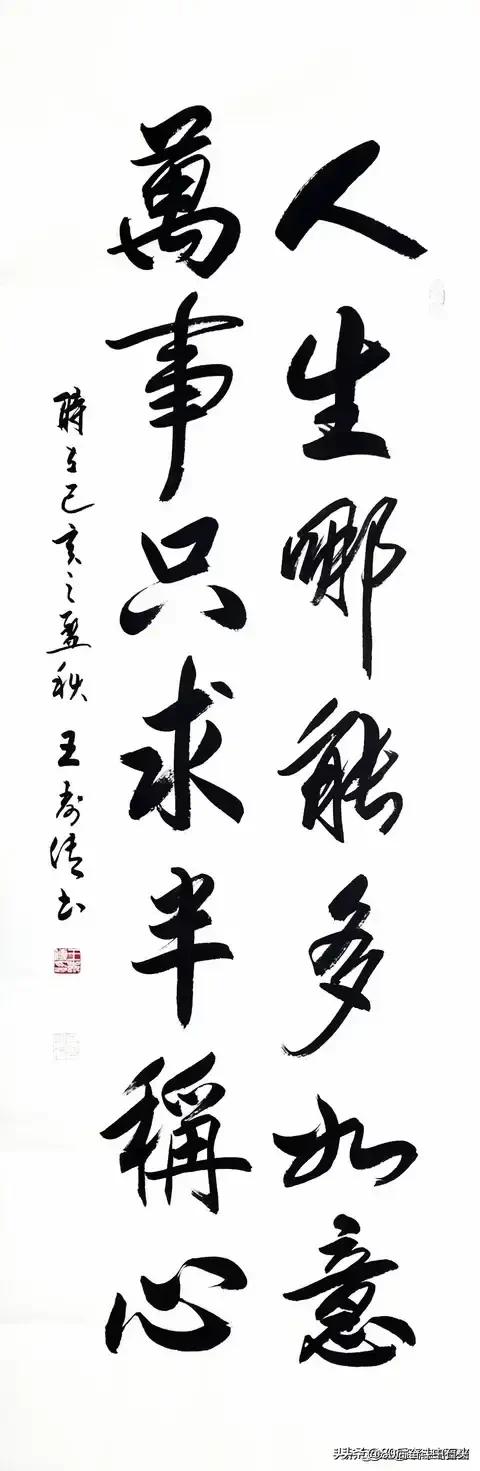 人生哪能多如意
萬事只求半稱心
時在己亥之秋 王书
头条